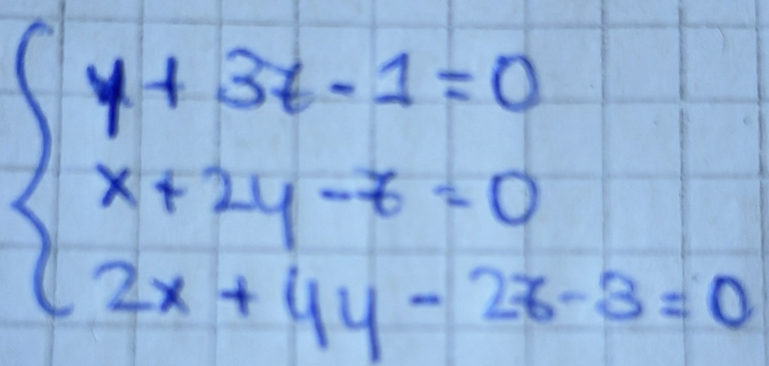 y + 3z - 1 = 0
x + 2y - z = 0
2x + 4y - 2z - 3 = 0